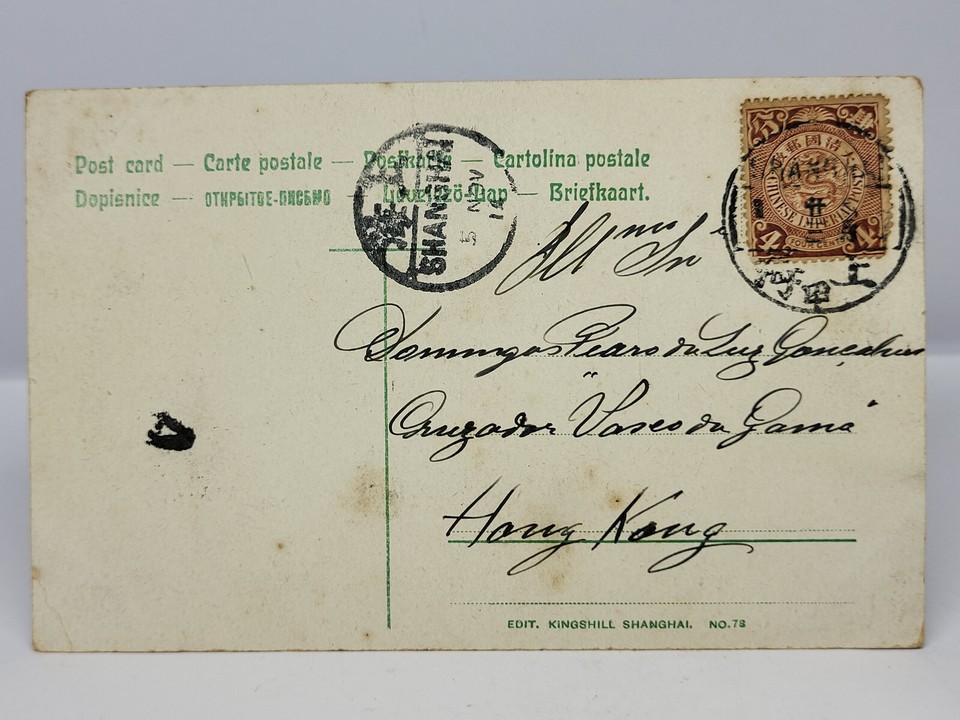 Post card — Carte postale — Postkarte — Cartolina postale
Dopisnice — ОТКРЫТОЕ-ПИСЬМО — Levelező-Lap — Briefkaart.
上海
SHANGHAI
5 NOV
大清國郵政
CHINESE IMPERIAL POST
4 FOUR CENTS 4
上海
Illmo Snr
Domingos Pearo da Luz Gonçalves
Cruzador "Vasco da Gama"
Hong Kong
EDIT. KINGSHILL SHANGHAI. NO.78